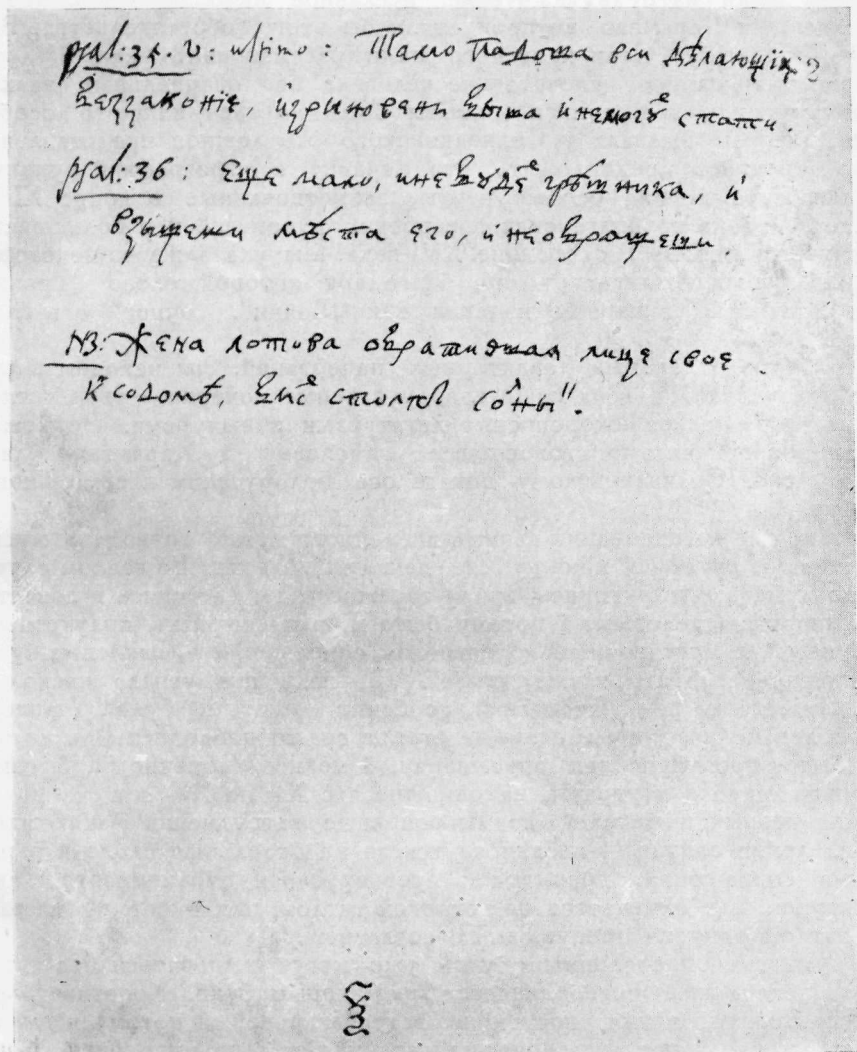 psal: 35. v: ultimo: Тамо падоша вси дѣлающіи
беззаконіе, изриновени быша и немогуᵗ стати.
psal: 36: Еще мало, и не будеᵗ грѣшника, и
взыщеши мѣста его, и не обрящеши
NB: Жена лотова обратившая лице свое
к содомѣ, бысᵗ столпъ соˡны".